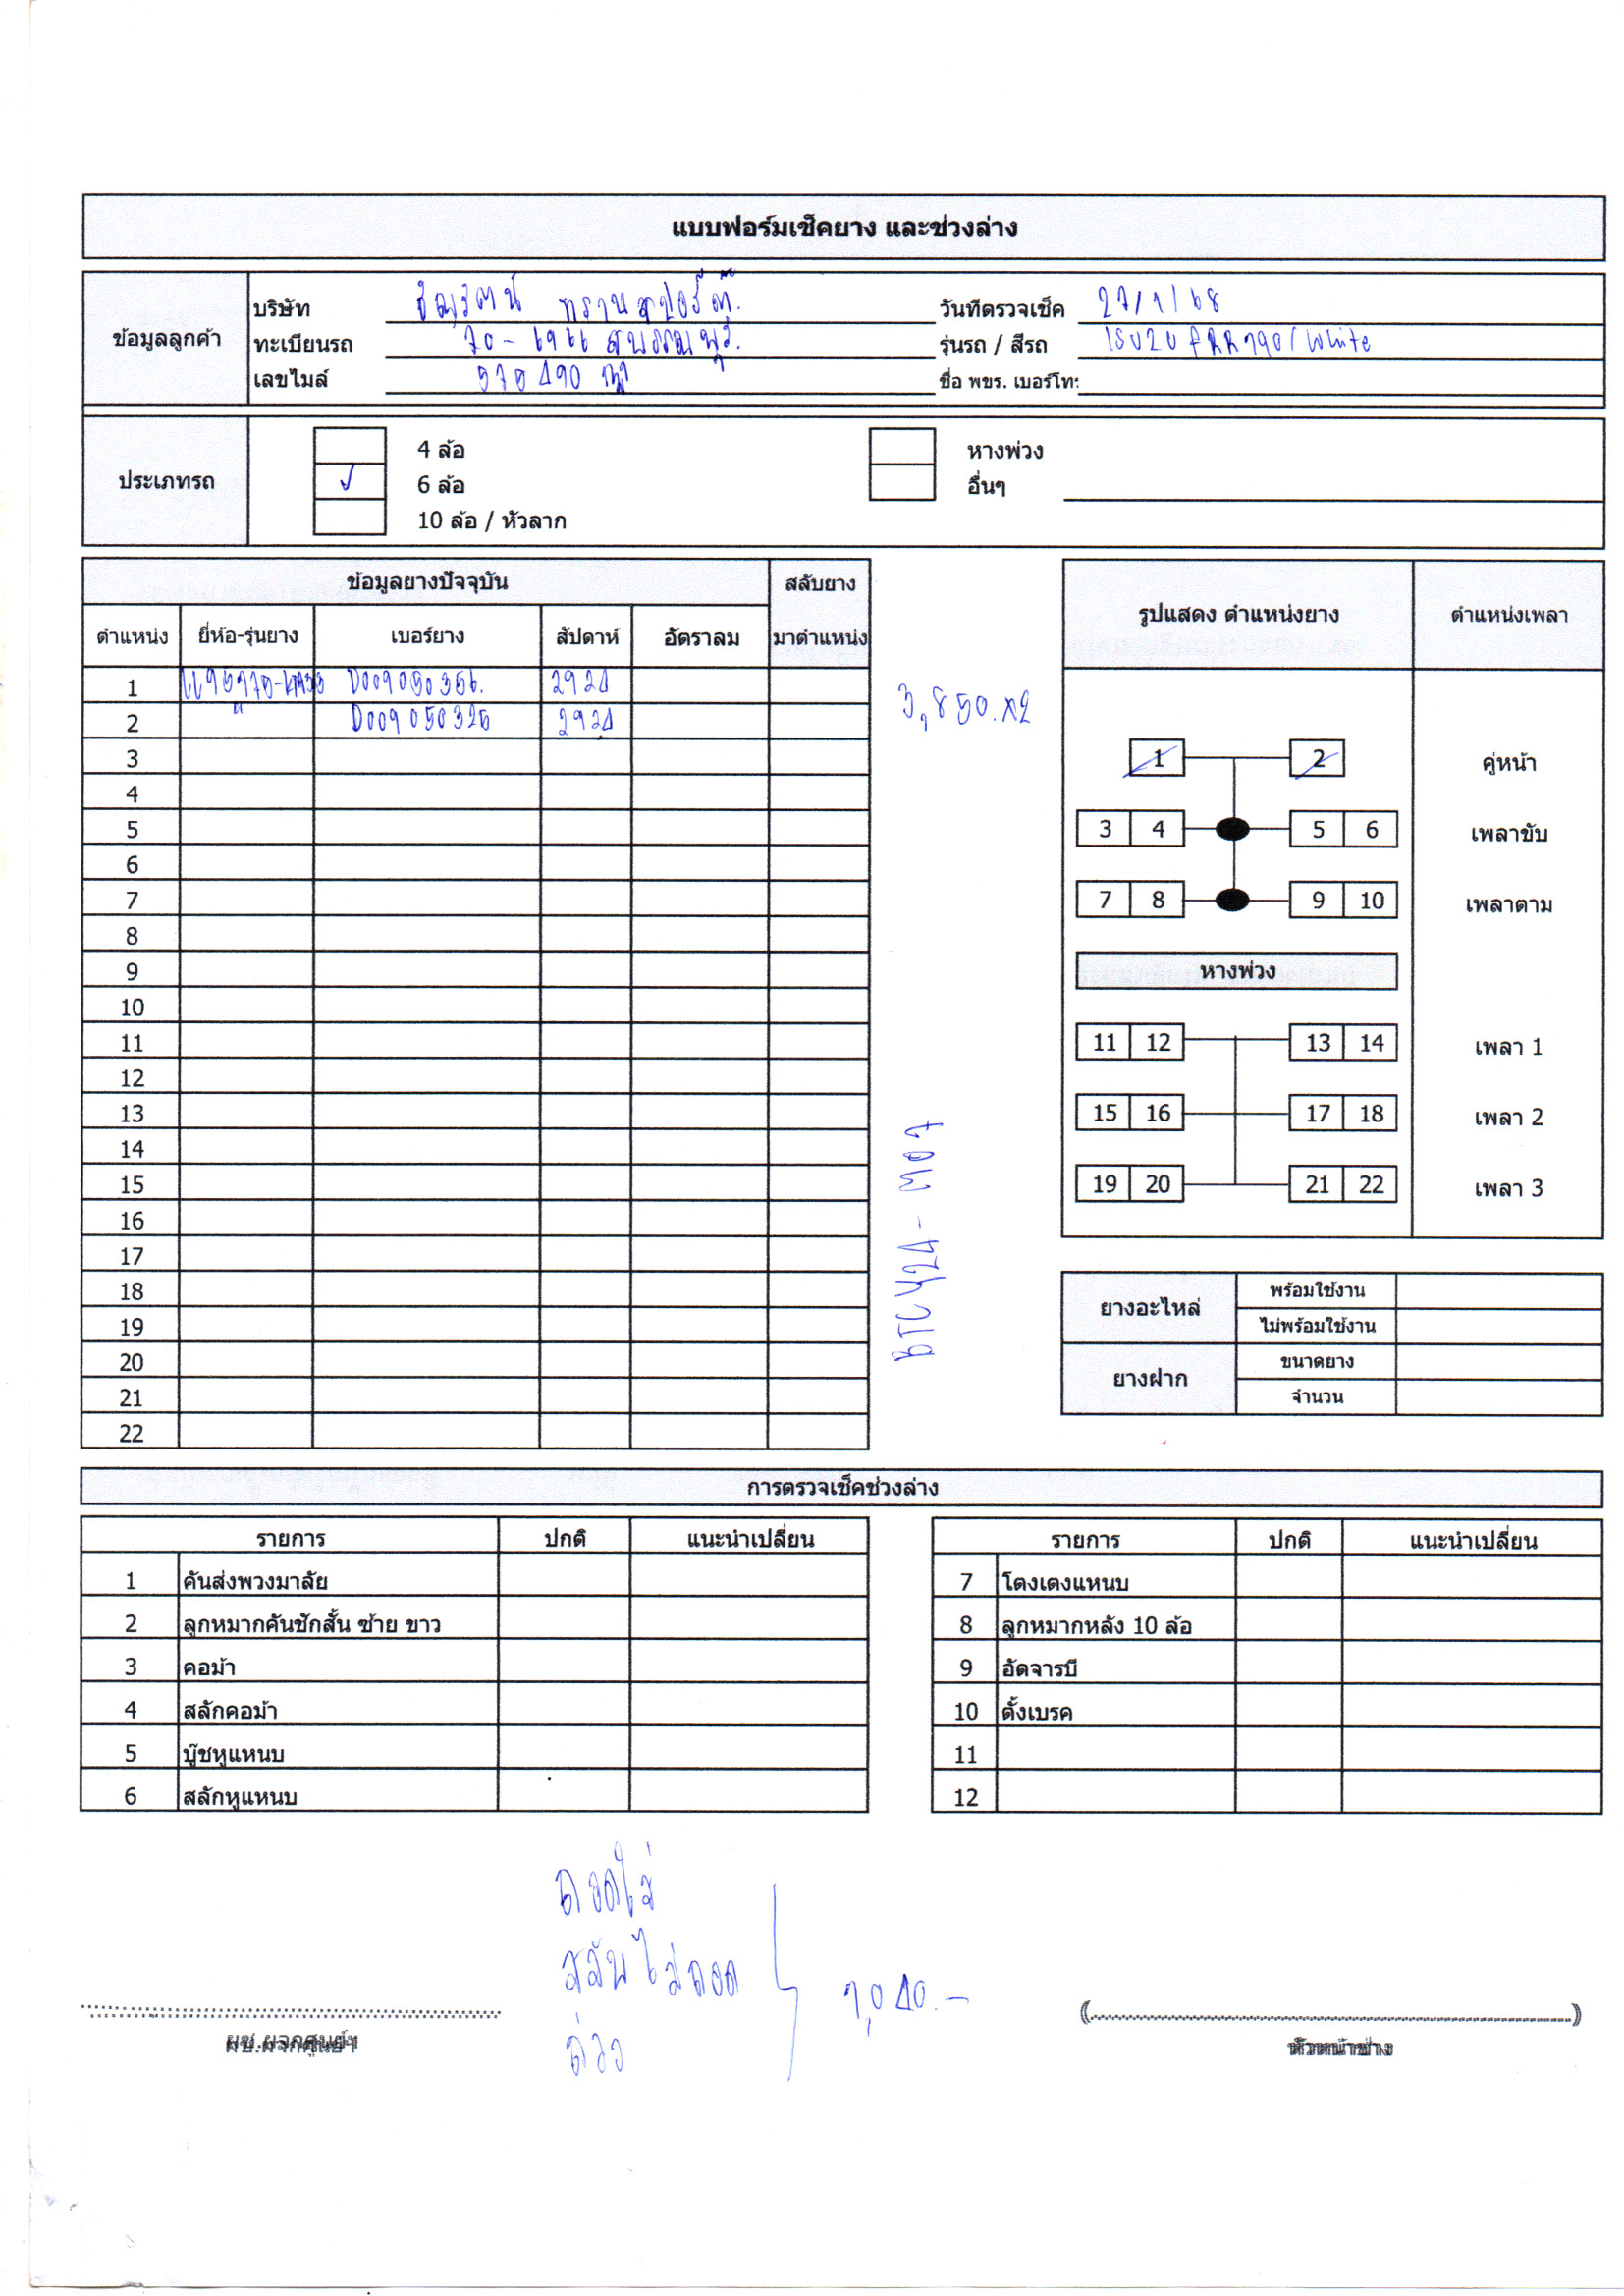 แบบฟอร์มเช็คยาง และช่วงล่าง
ข้อมูลลูกค้า
บริษัท
วันที่ตรวจเช็ค 27/1/68
ทะเบียนรถ 70 - สุพรรณบุรี.
รุ่นรถ / สีรถ ISUZU FRR190/White
เลขไมล์ 575490
ชื่อ พขร. เบอร์โทร
ประเภทรถ
4 ล้อ
หางพ่วง
✓ 6 ล้อ
อื่นๆ
10 ล้อ / หัวลาก
ข้อมูลยางปัจจุบัน สลับยาง
ตำแหน่ง ยี่ห้อ-รุ่นยาง เบอร์ยาง สัปดาห์ อัตราลม มาตำแหน่ง
1 D009050356. 2924
2 " D009050325 2924
3
4
5
6
7
8
9
10
11
12
13
14
15
16
17
18
19
20
21
22
3,850.x2
BTCY24-M07
รูปแสดง ตำแหน่งยาง ตำแหน่งเพลา
1 2 คู่หน้า
3 4 5 6 เพลาขับ
7 8 9 10 เพลาตาม
หางพ่วง
11 12 13 14 เพลา 1
15 16 17 18 เพลา 2
19 20 21 22 เพลา 3
ยางอะไหล่ พร้อมใช้งาน
ไม่พร้อมใช้งาน
ยางฝาก ขนาดยาง
จำนวน
การตรวจเช็คช่วงล่าง
รายการ ปกติ แนะนำเปลี่ยน
1 คันส่งพวงมาลัย
2 ลูกหมากคันชักสั้น ซ้าย ขาว
3 คอม้า
4 สลักคอม้า
5 บู๊ชหูแหนบ
6 สลักหูแหนบ
รายการ ปกติ แนะนำเปลี่ยน
7 โตงเตงแหนบ
8 ลูกหมากหลัง 10 ล้อ
9 อัดจารบี
10 ตั้งเบรค
11
12
ถอดใส่
สลับไม่ถอด
ถ่วง
1,040.-
ผช.ผจกศูนย์ฯ
(....................)
หัวหน้าช่าง